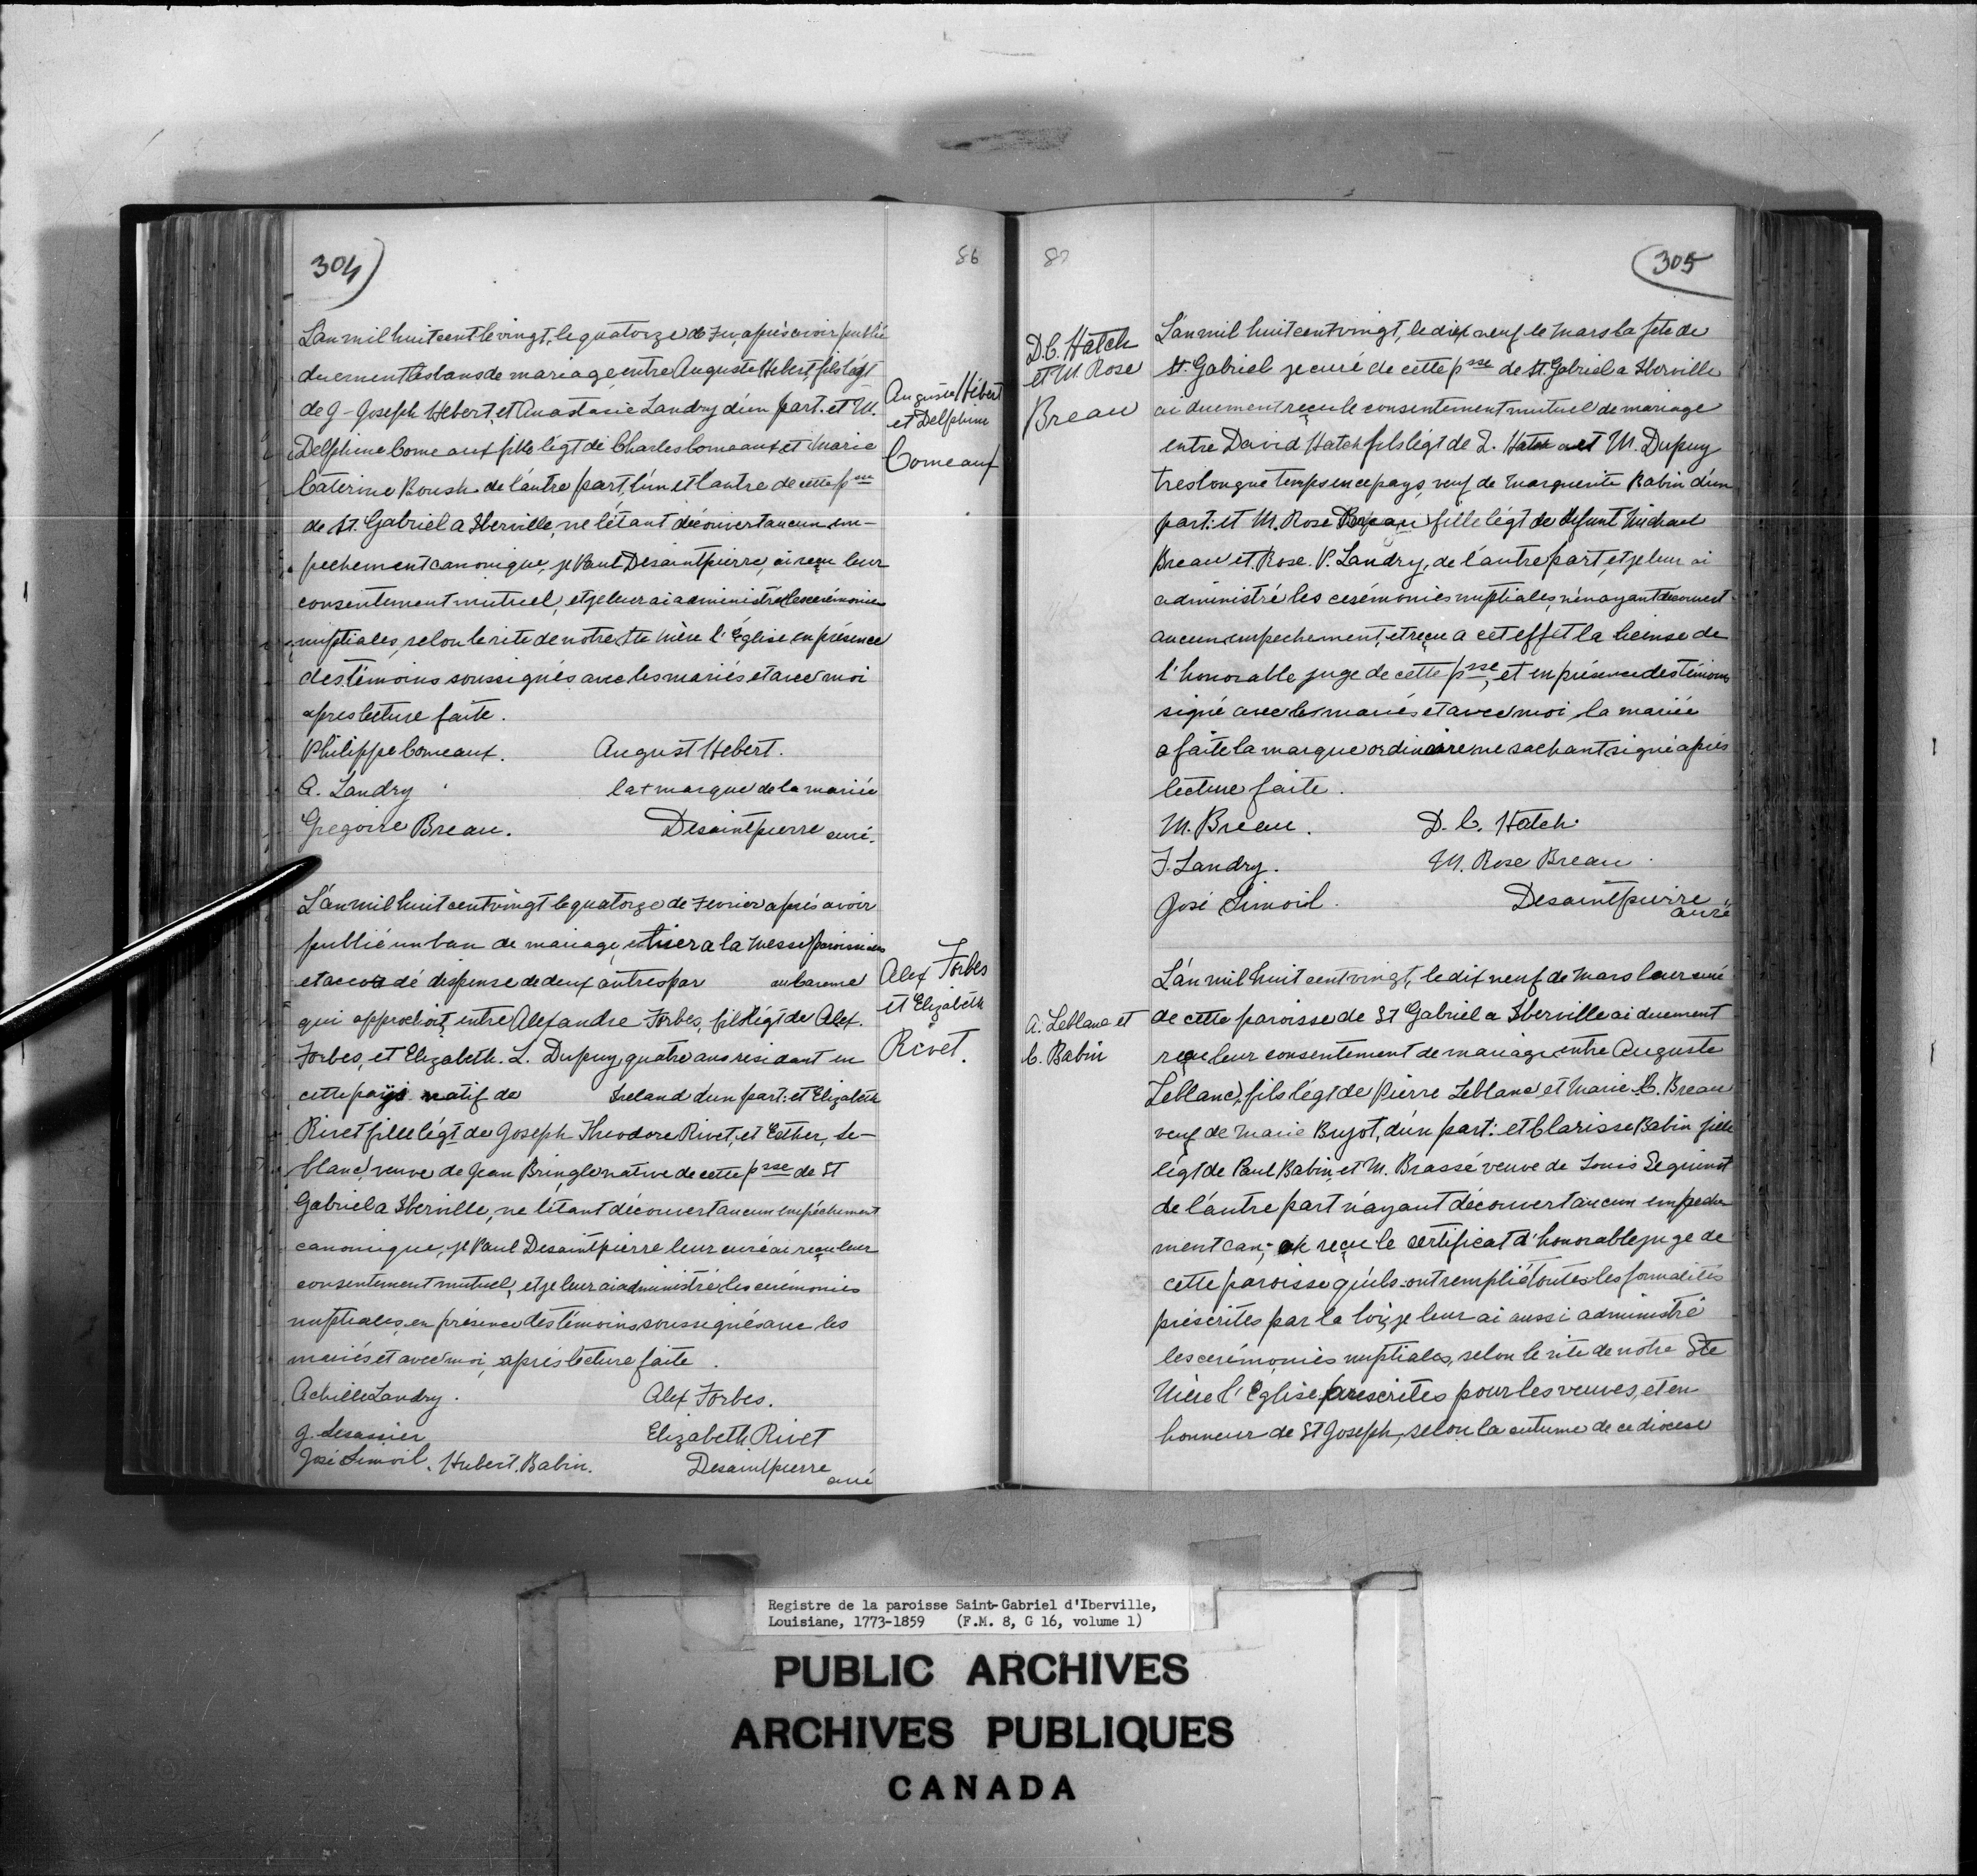 304)
86
L'an mil huit cent le vingt, le quatorze de Fev, après avoir publié
duement les bans de mariage, entre Auguste Hebert, fils légt
de J- Joseph Hebert, et Anastasie Landry d'un part. et M.
Delphine Comeaux fille légt de Charles Comeaux et Marie
Caterine Roush de l'autre part, l'un et l'autre de cette psse
de St. Gabriel a Iberville, ne l'étant découvert aucun em-
pechement canonique, je Paul Desaintpierre, ai reçu leur
consentement mutuel, et je leur ai administré les cerémonies
nuptiales, selon le rite de notre Ste Mère l'Église en présence
des témoins soussignés avec les mariés et avec moi
apres lecture faite.
Philippe Comeaux. August Hebert.
A. Landry la + marque de la mariée
Gregoire Breau. Desaintpierre curé.
Auguste Hébert
et Delphine
Comeaux
L'an mil huit cent vingt le quatorze de Fevrier après avoir
publié un ban de mariage, entier a la Messe paroissiale
et accordé dispense de deux autres par au Careme
qui approchoit, entre Alexandre Forbes, fils légt de Alex.
Forbes, et Elizabeth. L. Dupuy, quatre ans residant en
cette pays natif de Ireland d'un part: et Elizabeth
Rivet fille légt de Joseph Theodore Rivet, et Esther, Le-
blanc, veuve de Jean Bringle native de cette psse de St
Gabriel a Iberville, ne l'étant découvert aucun empéchement
canonique, je Paul Desaintpierre leur curé ai reçu leur
consentement mutuel, et je leur ai administré les cerémonies
nuptiales, en présence des témoins soussignés avec les
mariés et avec moi, après lecture faite.
Achille Landry. Alex Forbes.
G. Lesassier Elizabeth Rivet
José Limoil. Hubert. Babin. Desaintpierre
curé
Alex Forbes
et Elizabeth
Rivet.
87
305
D.C. Hatch
et M. Rose
Breau
L'an mil huit cent vingt, le dix neuf le Mars la fete de
St. Gabriel je curé de cette psse de St. Gabriel a Iberville
ai duement reçu le consentement mutuel de mariage
entre David Hatch fils légt de D. Hatch et M. Dupuy
tres longue temps en ce pays, veuf de Marguerite Babin d'un
part: et M. Rose Breau fille légt de defunt Michael
Breau et. Rose. P. Landry, de l'autre part, et je leur ai
administré les cerémonies nuptiales, n'en ayant découvert
aucun empechement, et reçu a cet effet la license de
l'honorable juge de cette psse, et en présence des témoins
signé avec les mariés et avec moi, la mariée
a faite la marque ordinaire ne sachant signé après
lecture faite.
M. Breau. D. C. Hatch.
F. Landry. M. Rose Breau.
José Limoil. Desaintpierre
curé
A. Leblanc et
C. Babin
L'an mil huit cent vingt, le dix neuf de Mars leur curé
de cette paroisse de St Gabriel a Iberville ai duement
reçu leur consentement de mariage entre Auguste
Leblanc, fils légt de Pierre Leblanc et Marie C. Breau
veuf de Marie Bujot, d'un part: et Clarisse Babin fille
légt de Paul Babin, et M. Brassé veuve de Louis Seguinot
de l'autre part n'ayant découvert aucun empeche
ment can; reçu le certificat d'honorable juge de
cette paroisse qu'ils ont remplié toutes les formalités
préscrites par la loi, je leur ai aussi administré
les cerémonies nuptiales, selon le rite de notre Ste
Mère l'Église prescrites pour les veuves, et en
honneur de St Joseph, selon la cutume de ce diocese
Registre de la paroisse Saint-Gabriel d'Iberville,
Louisiane, 1773-1859 (F.M. 8, G 16, volume 1)
PUBLIC ARCHIVES
ARCHIVES PUBLIQUES
CANADA